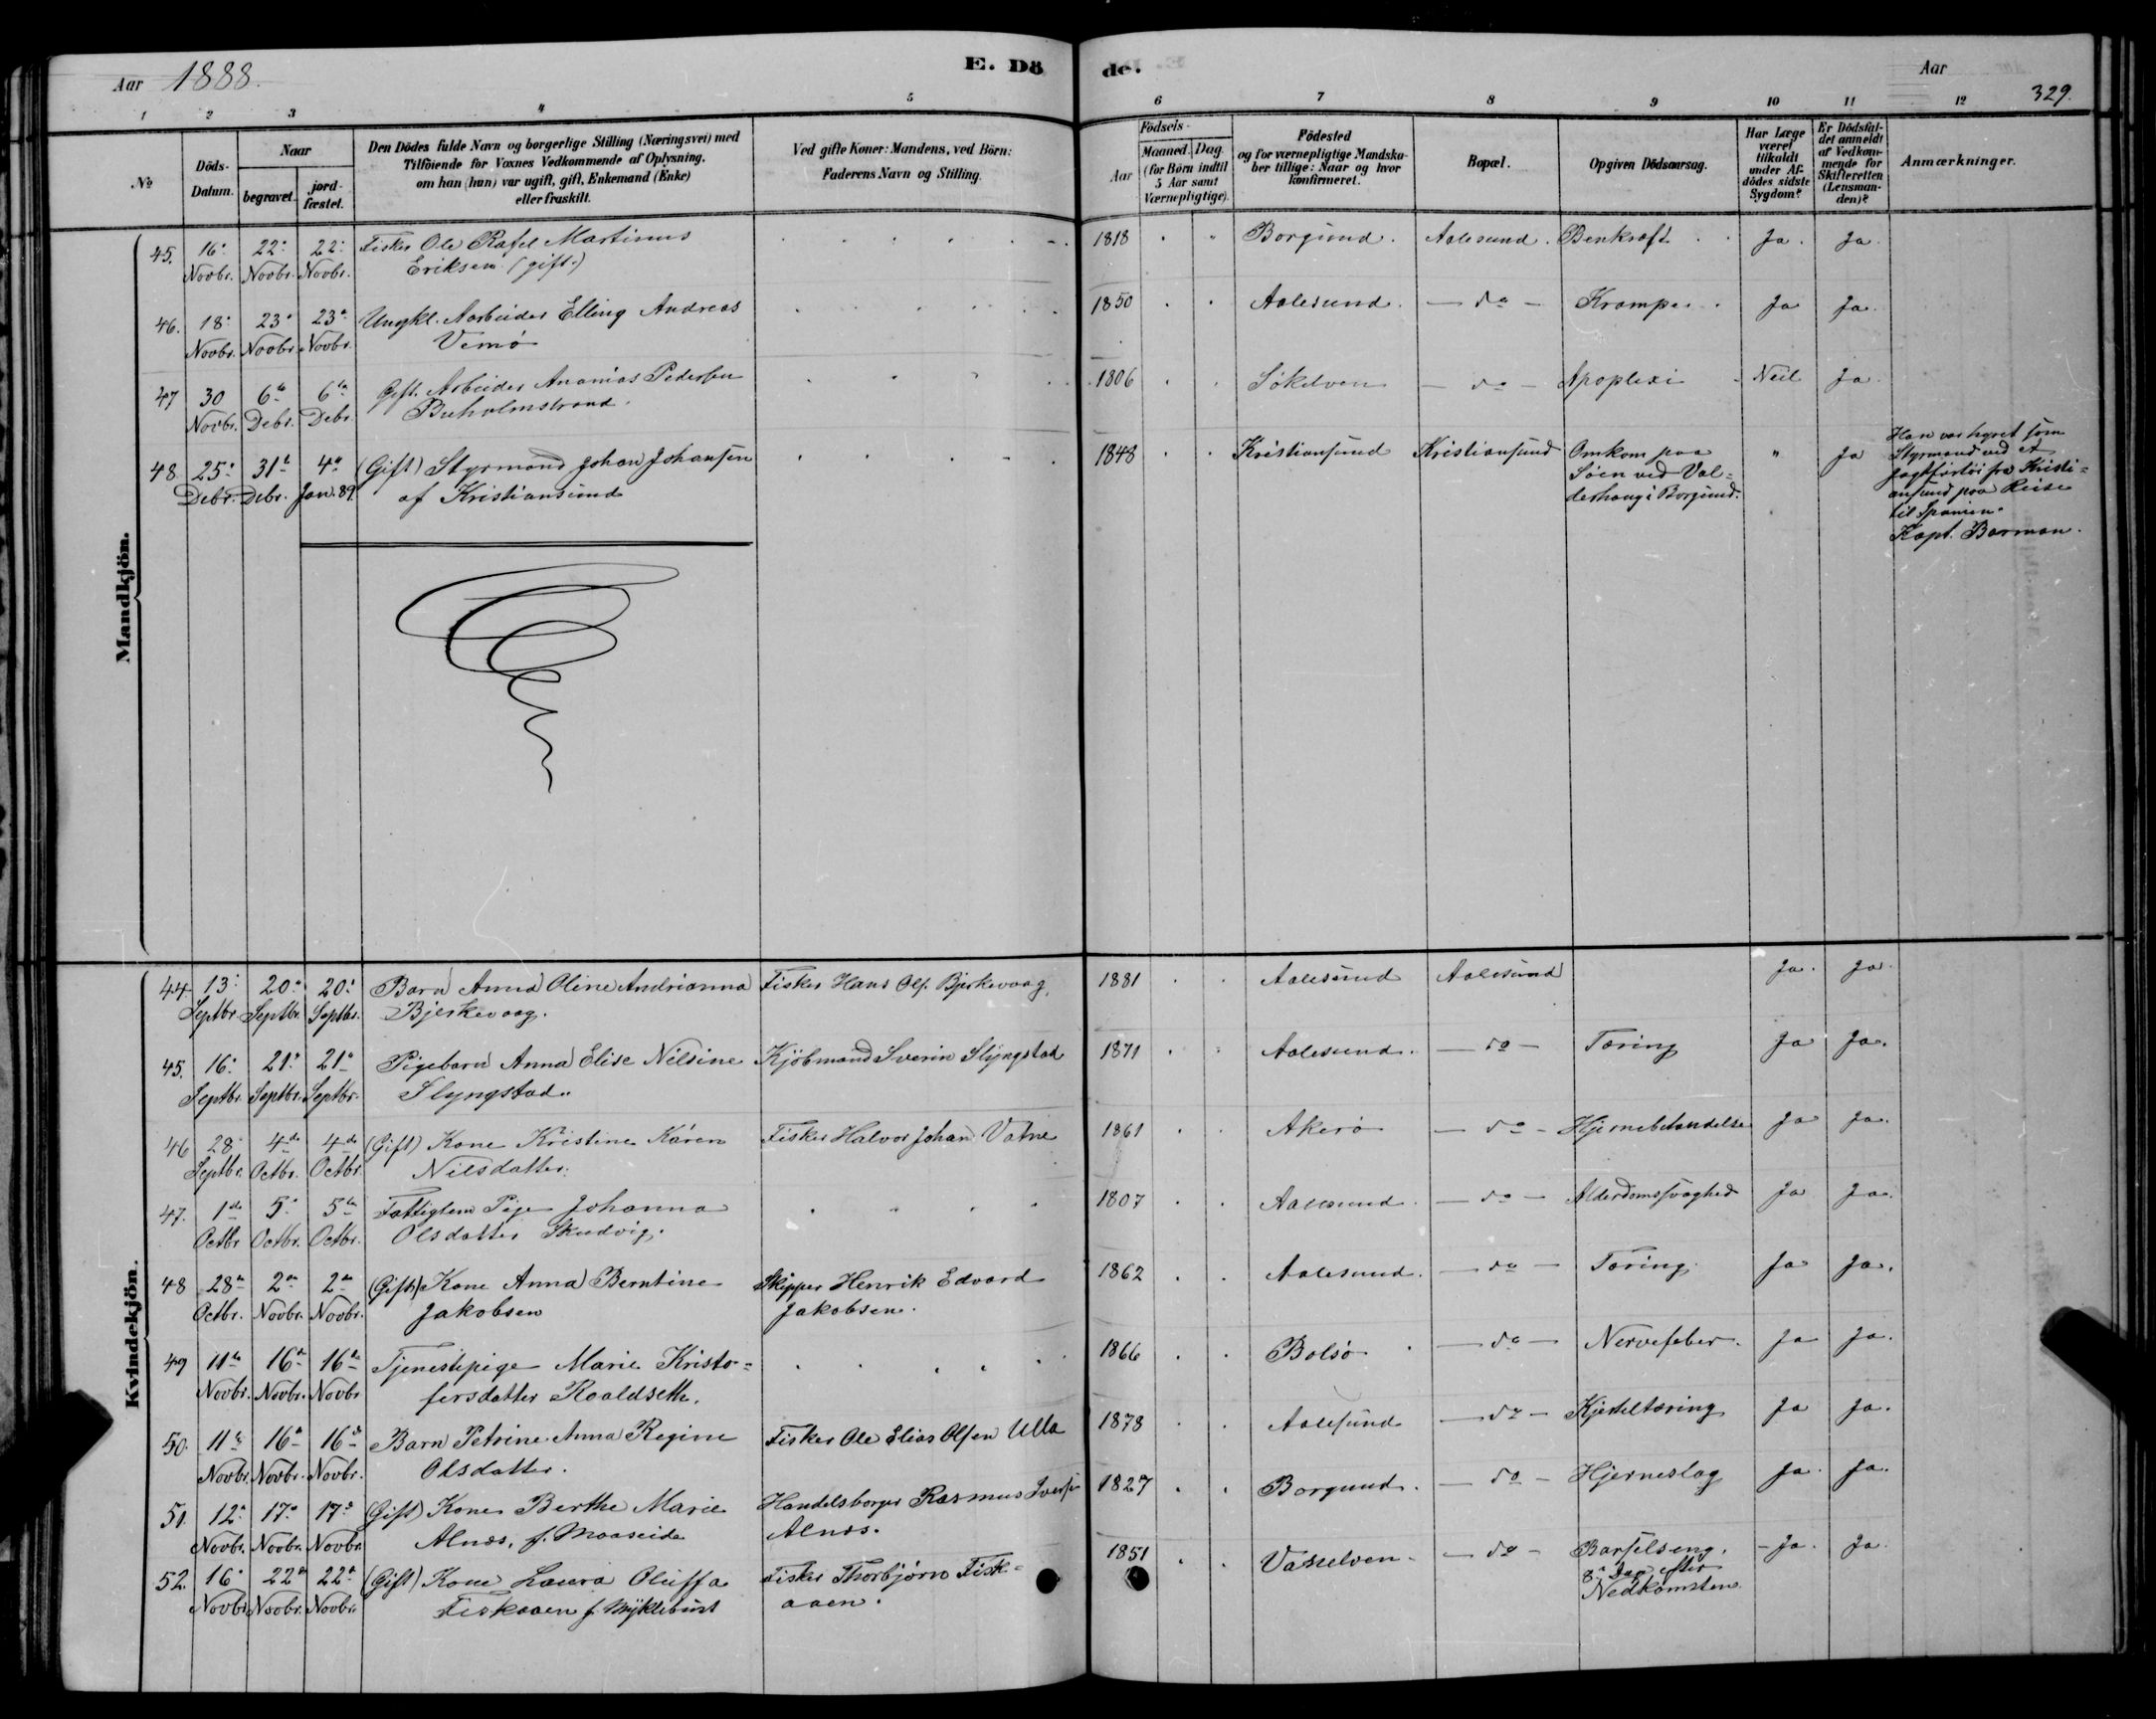 Aar 1888.
E. Dö
de.
Aar
329.
1 2 3 4 5
6 7 8 9 10 11 12
No
Döds-
Datum.
Naar
begravet.
jord-
fæstet.
Den Dödes fulde Navn og borgerlige Stilling (Næringsvei) med
Tilföiende for Voxnes Vedkommende af Oplysning,
om han (hun) var ugift, gift, Enkemand (Enke)
eller fraskilt.
Ved gifte Koner: Mandens, ved Börn:
Faderens Navn og Stilling.
Födsels-
Aar
Maaned. Dag.
(for Börn indtil
5 Aar samt
Værnepligtige).
Födested
og for værnepligtige Mandska-
ber tillige: Naar og hvor
konfirmeret.
Bopæl.
Opgiven Dödsaarsag.
Har Læge
været
tilkaldt
under Af-
dödes sidste
Sygdom?
Er Dödsfal-
det anmeldt
af Vedkom-
mende for
Skifteretten
(Lensman-
den)?
Anmærkninger.
Mandkjön.
45. 16. 22. 22. Fisker Ole Rafel Martinus 1818 Borgund. Aalesund. Benkræft Ja. Ja.
Novbr. Novbr. Novbr. Eriksen (gift.)
46. 18. 23. 23. Ungkl. Arbeider Elling Andreas 1850 Aalesund. — do — Krampe. Ja Ja.
Novbr. Novbr. Novbr. Vemø
47 30 6te 6te Gift. Arbeider Ananias Pedersen 1806 Søkelven — do — Apoplexi Neil Ja.
Novbr. Debr. Debr. Buholmstrand.
48. 25. 31t 4de (Gift) Styrmand Johan Johansen 1848 Kristiansund Kristiansund Omkom paa " Ja
Debr. Debr. Jan. 89. af Kristiansund Søen ved Val=
derhaug i Borgund.
Han var hyret som
Styrmand ved et
Jagtfartøi fra Kristi=
ansund paa Reise
til Spanien.
Kapt. Barman.
Kvindekjön.
44. 13. 20. 20. Barn Anna Oline Andrianna Fisker Hans Ols. Bjerkevaag. 1881 Aalesund Aalesund Ja. Ja.
Septbr. Septbr. Septbr. Bjerkevaag.
45. 16. 21. 21. Pigebarn Anna Elise Nilsine Kjöbmand Sverin Slyngstad 1871 Aalesund. — do — Tæring Ja Ja.
Septbr. Septbr. Septbr. Slyngstad.
46 28. 4de 4de (Gift) Kone Kristine Karen Fisker Halvor Johan Vatne 1861 Akerø — do — Hjernebetændelse Ja Ja.
Septbr. Octbr. Octbr. Nilsdatter.
47. 1ste 5. 5te Fattiglem Pige Johanna 1807 Aalesund. — do — Alderdomssvaghed Ja Ja.
Octbr. Octbr. Octbr. Olsdatter Skudvig.
48 28de 2den 2den (Gift) Kone Anna Berntine Skipper Henrik Edvard 1862 Aalesund. — do — Tæring. Ja Ja.
Octbr. Novbr. Novbr. Jakobsen Jakobsen.
49 11te 16de 16de Tjenestepige Marie Kristo= 1866 Bolsø. — do — Nervefeber. Ja Ja.
Novbr. Novbr. Novbr. fersdatter Roaldseth.
50. 11te 16de 16de Barn Petrine Anna Regine Fisker Ole Elias Olsen Ulla 1878 Aalesund — do — Kjerteltæring Ja Ja.
Novbr. Novbr. Novbr. Olsdatter.
51. 12. 17. 17. (Gift) Kone Berthe Marie Handelsborger Rasmus Iversen 1827 Borgund. — do — Hjerneslag Ja. Ja.
Novbr. Novbr. Novbr. Alnæs, f. Maaseide Alnæs.
52. 16. 22de 22de (Gift) Kone Laura Oluffa Fisker Thorbjørn Fisk= 1851 Vasselven. — do — Barselseng. Ja. Ja.
Novbr. Novbr. Novbr. Fiskaaen f. Myklebust aaen. 8de Dag efter
Nedkomsten.